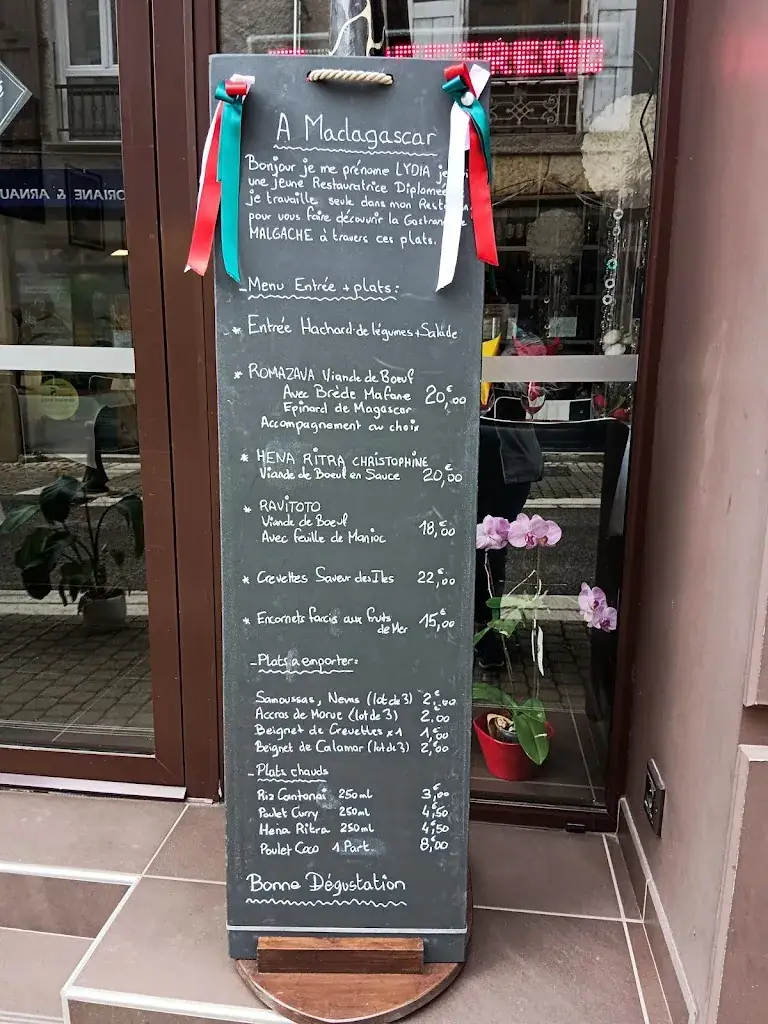 A Madagascar
Bonjour je me prénome LYDIA je
une jeune Restauratrice Diplomée
je travaille seule dans mon
pour vous faire découvrir la
MALGACHE à travers ces plats.
- Menu Entrée + plats:
* Entrée Hachard de légumes + Salade
* ROMAZAVA Viande de Boeuf
Avec Brède Mafane 20,€00
Epinard de Magascar
Accompagnement au choix
* HENA RITRA CHRISTOPHINE
Viande de Boeuf en Sauce 20,€00
* RAVITOTO
Viande de Boeuf
Avec feuille de Manioc 18,€00
* Crevettes Saveur des Iles 22,€00
* Encornets farcis aux fruits
de Mer 15,€00
- Plats a emporter:
Samoussas, Nems (lot de 3) 2,€00
Accras de Morue (lot de 3) 2,€00
Beignet de Crevettes x 1 1,€00
Beignet de Calamar (lot de 3) 2,€00
- Plats chauds
Riz Cantonai 250ml 3,€00
Poulet Curry 250ml 4,€50
Hena Ritra 250ml 4,€50
Poulet Coco 1 Part. 8,€00
Bonne Dégustation
ORIANE & ARNAU